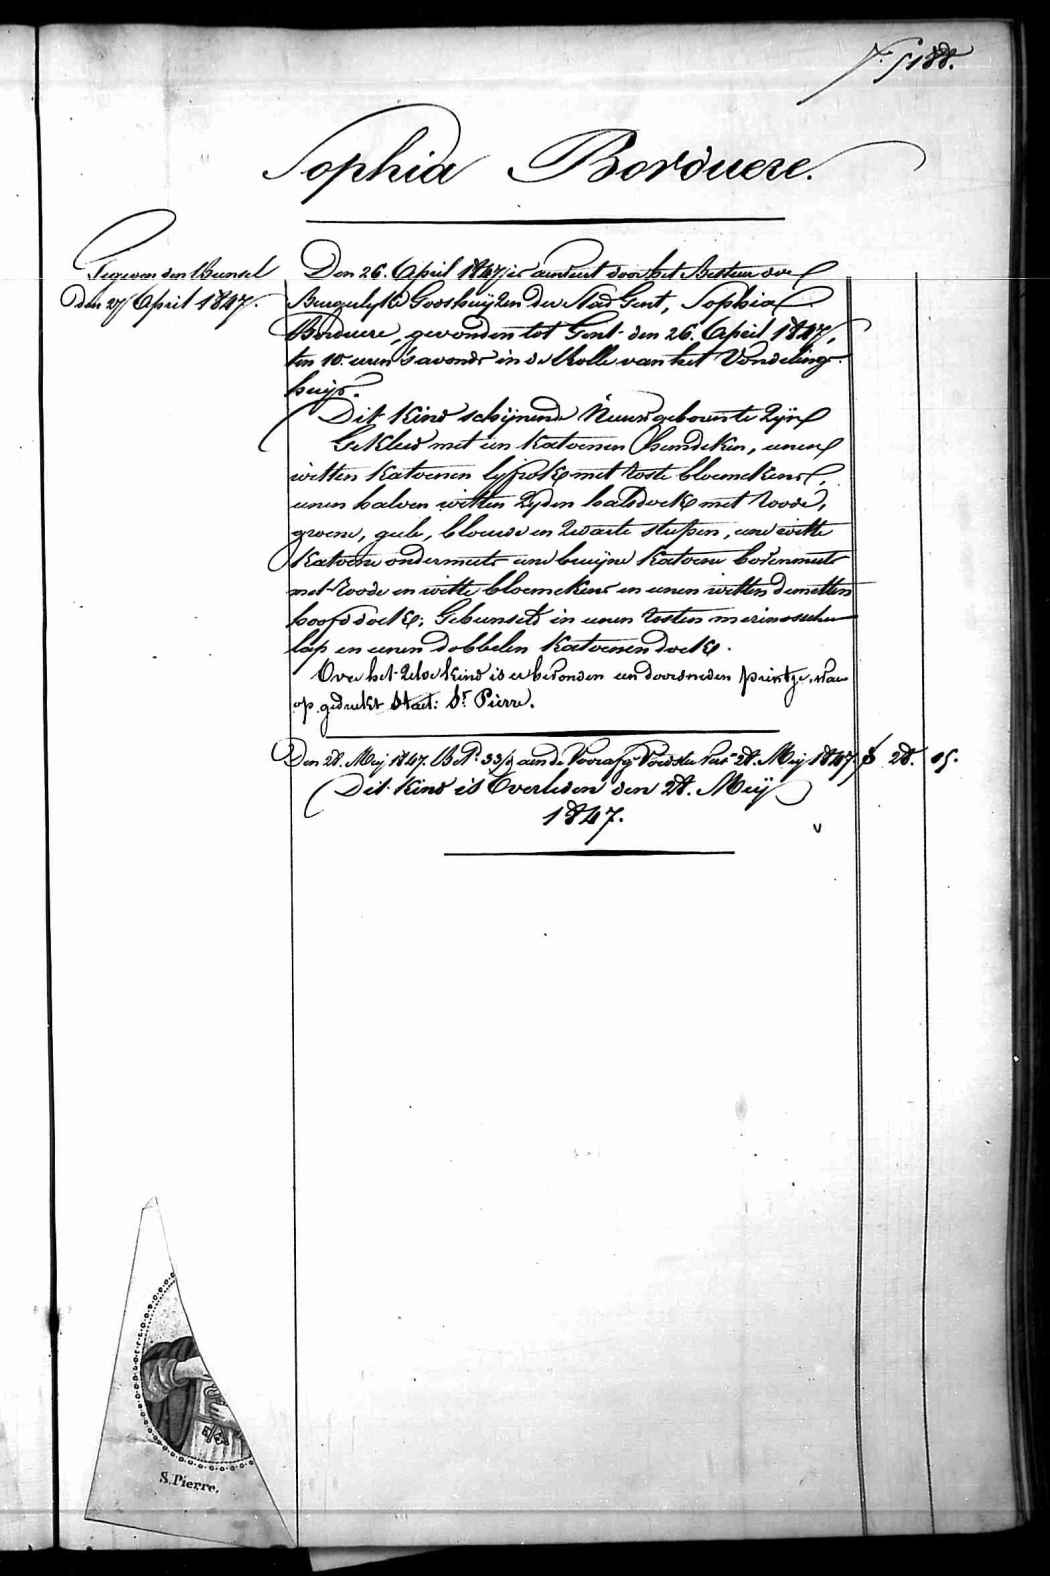 Sophia Borduere.
Gegeven den Bunsel
den 27 April 1847.
Den 26. April 1847 is aenveirt door het Bestuer der
Burgerlyke Godshuijzen der Stad Gent, Sophia
Borduere, gevonden tot Gent den 26. April 1847,
ten 10. uren 's avonds in de Rolle van het Vondelings-
huijs.
Dit kind schijnende Nieuwgeboren te Zijn
Gekleed met een katoenen hemdeken, eenen
witten katoenen lyfrok met roste bloemekens,
eenen halven witten Zyden halsdoek met roode,
groene, geele, blauwe en Zwarte strepen, eene witte
katoene ondermuts eene bruijne katoene bovenmuts
met roode en witte bloemekens en eenen witten demetten
hoofddoek; Gebunseld in eenen rosten merinosschen
lap en eenen dobbelen katoenen doek.
Over het Zelve kind is er bevonden een doorsneden printje, waer
op gedrukt staet: St Pierre.
Den 28. Meij 1847. aen de Voedster 28. Meij 1847 28. 05.
Dit kind is Overleden den 28. Meij
1847.
S. Pierre.